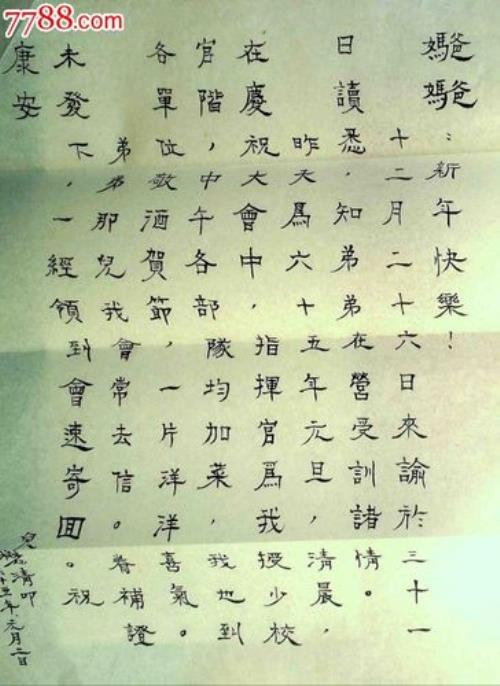 7788.com
爸爸媽媽：新年快樂！
十二月二十六日來諭於三十一
日讀悉，知弟弟在營受訓諸情。
昨天為六十五年元旦，清晨，
在慶祝大會中，指揮官為我授少校
官階，中午各部隊均加菜，我也到
各單位敬酒賀節，一片洋洋喜氣。
弟弟那兒我會常去信。眷補證
未發下，一經領到會速寄回。祝
康安
兒清叩
六十五年元月二日